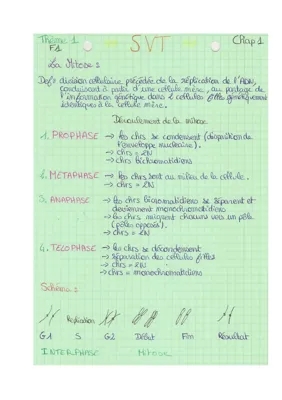 Thème 1 SVT Chap 1
F1
La Mitose :
Def : division cellulaire précédée de la réplication de l'ADN,
conduisant à partir d'une cellule mère, au partage de
l'information génétique dans 2 cellules filles génétiquement
identiques à la cellule mère.
Déroulement de la mitose
1. PROPHASE → les chrs se condensent (disparition de
l'enveloppe nucléaire).
→ chrs = 2N
→ chrs bichromatidiens
2. METAPHASE → les chrs sont au milieu de la cellule.
→ chrs = 2N
3. ANAPHASE → les chrs bichromatidiens se séparent et
deviennent monochromatidiens
→ les chrs migrent chacuns vers un pôle
(pôles opposés).
→ chrs = 2N
4. TELOPHASE → les chrs se décondensent
→ séparation des cellules filles
→ chrs = 2N
→ chrs = monochromatidiens
Schéma :
Réplication
G1 S G2 Début Fin Résultat
INTERPHASE Mitose